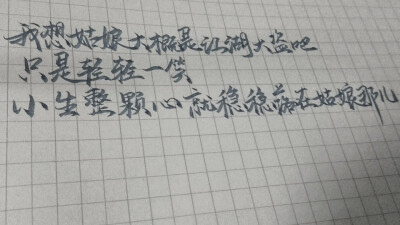 我想姑娘大概是江湖大盗吧
只是轻轻一笑
小生整颗心就稳稳落在姑娘那儿